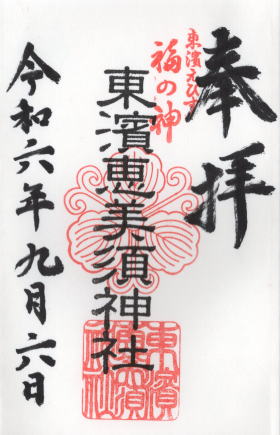 奉拝
東濱えびす
福の神
東濱恵美須神社
令和六年九月六日
東濱
恵美須
神社